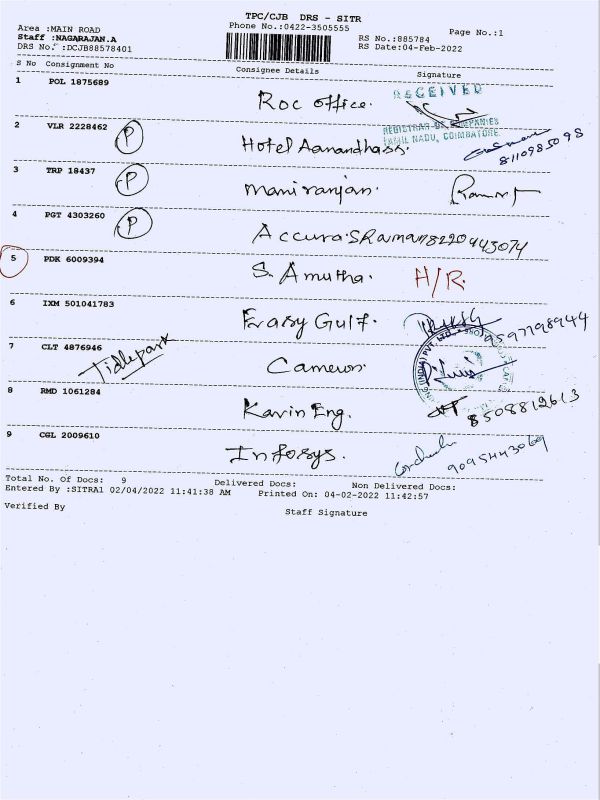 TPC/CJB DRS - SITR
Area :MAIN ROAD Phone No.:0422-3505555 Page No.:1
Staff :NAGARAJAN.A RS No.:885784
DRS No. :DCJB88578401 RS Date:04-Feb-2022
S No Consignment No Consignee Details Signature
1 POL 1875689 Roc office. RECEIVED
REGISTRAR OF COMPANIES
TAMIL NADU, COIMBATORE
2 VLR 2228462 P Hotel Aanandhass. 8110985098
3 TRP 18437 P maniranjan.
4 PGT 4303260 P Accura. SRaman 8220443074
5 PDK 6009394 S. Amutha. H/R.
6 IXM 501041783 Easy Gulf. 9597198944
7 CLT 4876946 Tidlepark Cameron.
(INDIA) PVT LTD
8 RMD 1061284 Kavin Eng. 8508812613
9 CGL 2009610 Infosys. 9095443069
Total No. Of Docs: 9 Delivered Docs: Non Delivered Docs:
Entered By :SITRA1 02/04/2022 11:41:38 AM Printed On: 04-02-2022 11:42:57
Verified By Staff Signature